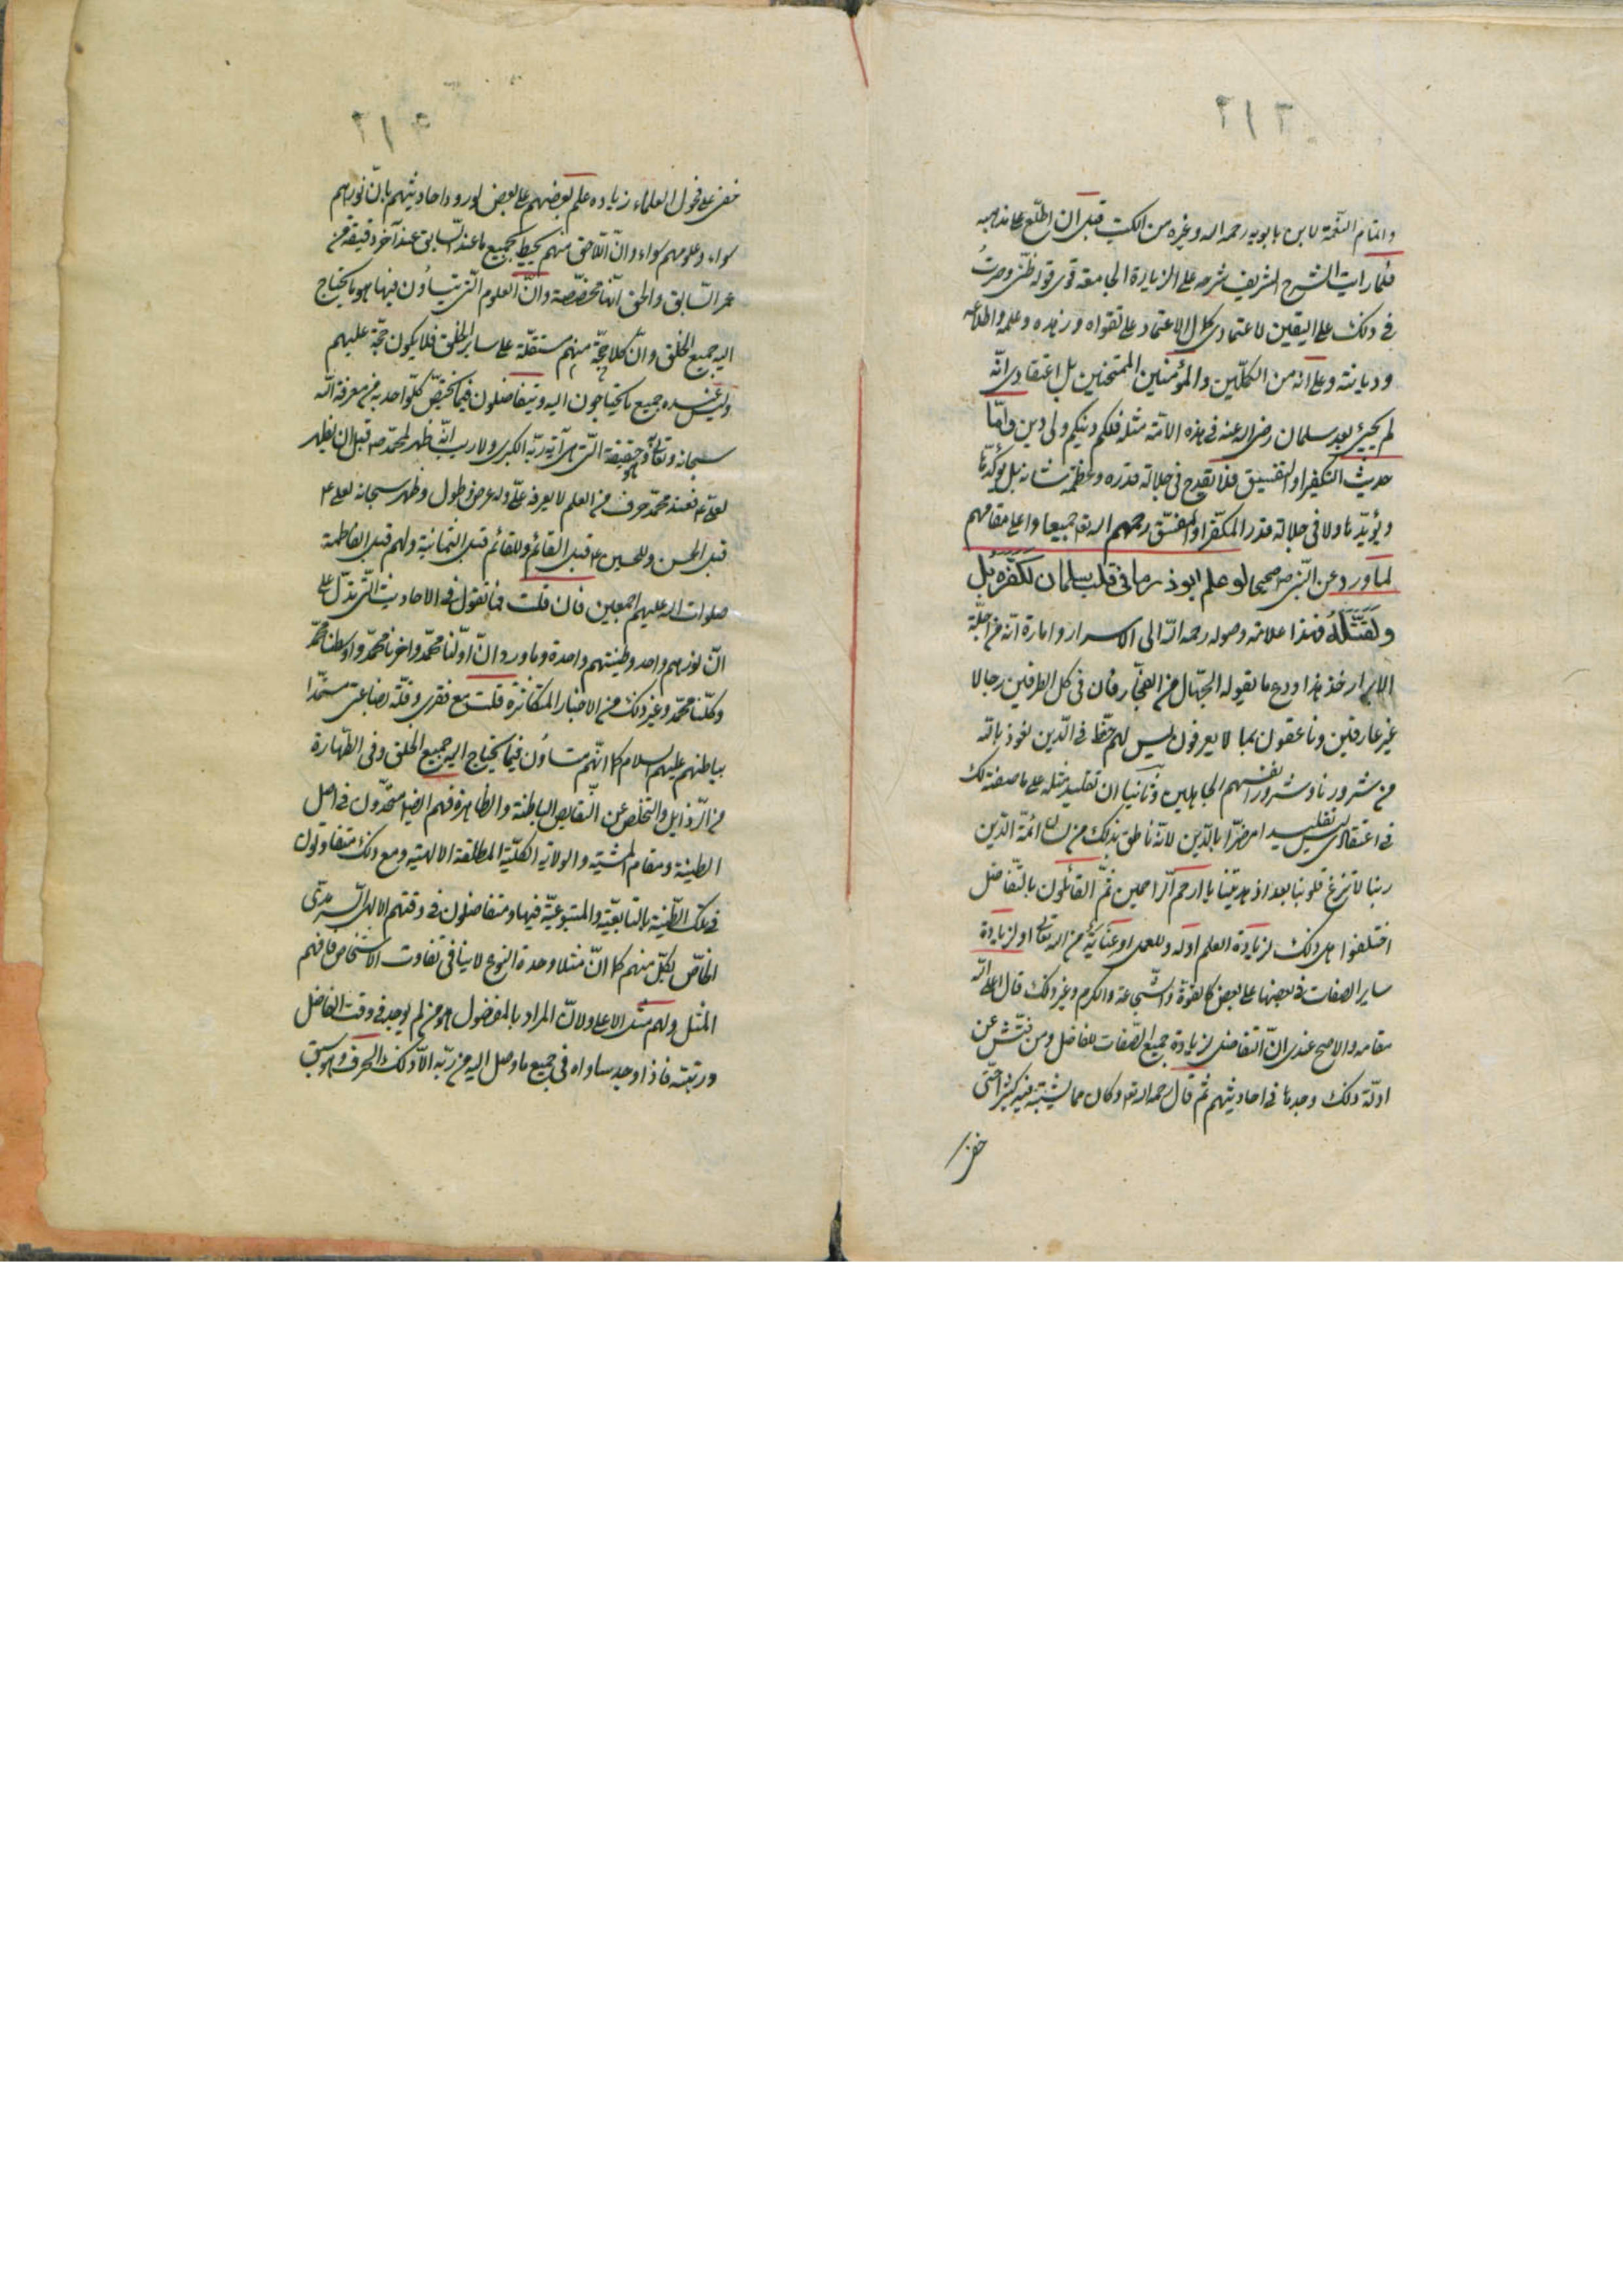 واتمام النعمة لابن بابويه رحمه الله وغيره من الكتب قبل ان اطلع على مذهبه
فلما رايت الشرح الشريف شرحه على الزيارة الجامعة قوى قوله ظنى وصرت
فى ذلك على اليقين لاعتمادى كل الاعتماد على تقواه وزهده وعلمه واطلاعه
وديانته وعلى انه من الكملين والمؤمنين الممتحنين بل اعتقادى انه
لم يجيئ بعد سلمان رضى الله عنه فى هذه الامة مثله فلكم دينكم ولى دين واما
حديث التكفير او التفسيق فلا يقدح فى جلالة قدره وعظمة شانه بل يؤكدها
ويؤيدها ولا فى جلالة قدر المكفر او المفسق رحمهم الله تعـ جميعا واعلى مقامهم
لما ورد عن النبى صـ صحيحا لو علم ابوذر ما فى قلب سلمان لكفره بل
ولقتله فهذا علامة وصوله رحمه الله الى الاسرار وامارة انه من اجلة
الابرار خذ هذا ودع ما يقوله الجهال من الفجار فان فى كل الطرفين رجالا
غير عارفين وناعقون بما لا يعرفون ليس لهم حظ فى الدين نعوذ بالله
من شرورنا وشرور انفسهم الجاهلين وثانيا ان تقليد مثله على ما وصفته لك
فى اعتقادى ليس تقليد امرضرا بالدين لانه ناطق بذلك من لسان ائمة الدين
ربنا لا تزغ قلوبنا بعد اذ هديتنا يا ارحم الراحمين ثم القائلون بالتفاضل
اختلفوا هل ذلك لزيادة العلم اوله وللعمل او عناية من الله تعالى او لزيادة
ساير الصفات فى بعضها على بعض كالقوة والشجاعة والكرم وغير ذلك قال اعلى الله
مقامه والاصح عندى ان التفاضل بزيادة جميع الصفات للفاضل ومن فتش عن
ادلة ذلك وجدها فى احاديثهم ثم قال رحمه الله تعـ وكان مما يشتبه فيه كثير حتى
خفى
خفى على فحول العلماء زيادة علم بعضهم على بعض لورود احاديثهم بان نورهم
سواء وعلومهم سواء وان اللاحق منهم يحيط بجميع ما عند السابق عند آخر دقيقة من
عمر السابق والحق انها مخصصة وان العلوم التى يتساوون فيها هو ما يحتاج
اليه جميع الخلق وان كلا حجة منهم مستقلة على ساير الخلق فلا يكون حجة عليهم
وليس عنده جميع ما يحتاجون اليه ويتفاضلون فيما يختص كل واحد به من معرفة الله
سبحانه وتعالى وحقيقة التى هى آية ربه الكبرى ولا ريب انه ظهر لمحمد صـ قبل ان يظهر
لعلى ع فعند محمد حرف من العلم لا يعرفه على وله عرض وطول وظهر سبحانه لعلى ع
قبل الحسن وللحسين ع قبل القائم وللقائم قبل الثمانية ولهم قبل الفاطمة
صلوات الله عليهم اجمعين فان قلت فما تقول فى الاحاديث التى تدل على
ان نورهم واحد وطينتهم واحدة وما ورد ان اولنا محمد واخرنا محمد واوسطنا محمد
وكلنا محمد وغير ذلك من الاخبار المتكاثرة قلت مع فقرى وقلة بضاعتى مستمدا
بباطنهم عليهم السلام كما انهم متساوون فيما يحتاج اليه جميع الخلق وفى الطهارة
من الرذايل والتخلص عن النقايص الباطنة والظاهرة فهم ايضا متحدون فى اصل
الطينة ومقام المشية والولاية الكلية المطلقة الالهية ومع ذلك متفاوتون
فى تلك الطينة بالتابعية والمتبوعية فيها ومتفاضلون فى وقتهم الالهى السرمدى
الخاص لكل منهم كما ان مثلا وحدة النوع لا ينافى تفاوت الاشخاص فافهم
المثل ولهم مثل الاعلى ولان المراد بالمفضول هو من لم يوجد فى وقت الفاضل
ورتبته فاذا وجد ساواه فى جميع ما وصل اليه من ربه الا ذلك الحرف وهو سبق